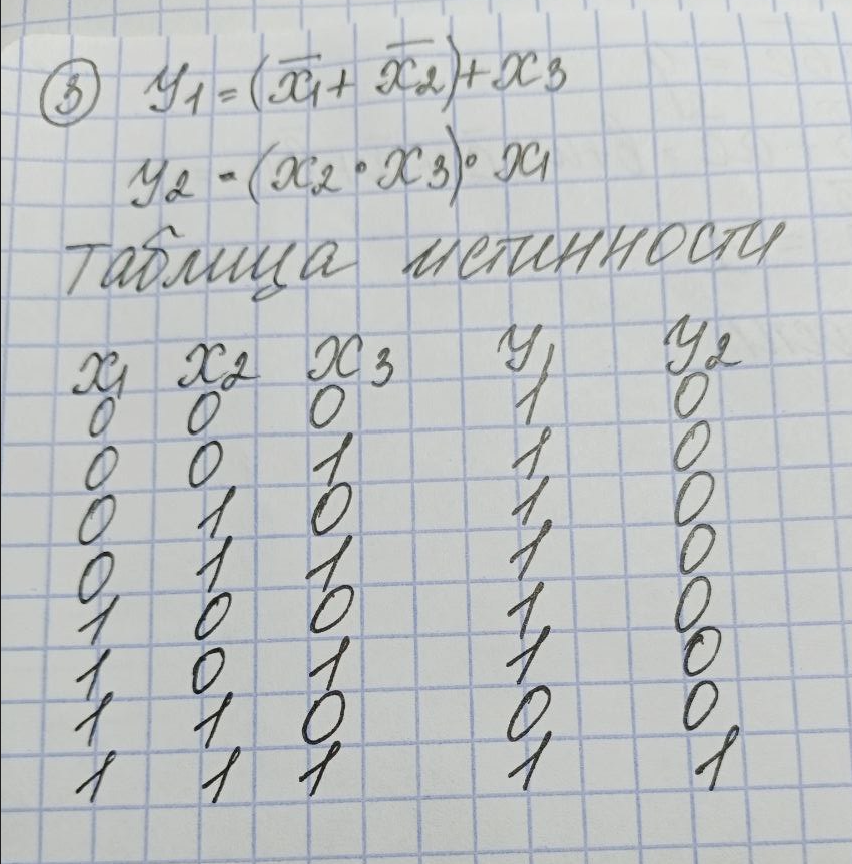 ③ y₁ = (x̅₁ + x̅₂) + x₃
y₂ = (x₂ · x₃) · x₁
Таблица истинности
x₁ x₂ x₃ y₁ y₂
0 0 0 1 0
0 0 1 1 0
0 1 0 1 0
0 1 1 1 0
1 0 0 1 0
1 0 1 1 0
1 1 0 0 0
1 1 1 1 1